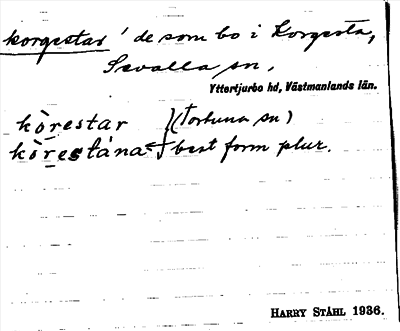 korgestar 'de som bo i Korgesta,
Sevalla sn.
Yttertjurbo hd, Västmanlands län.
kòrestar }(Tortuna sn)
kòrestána best form plur.
HARRY STÅHL 1936.